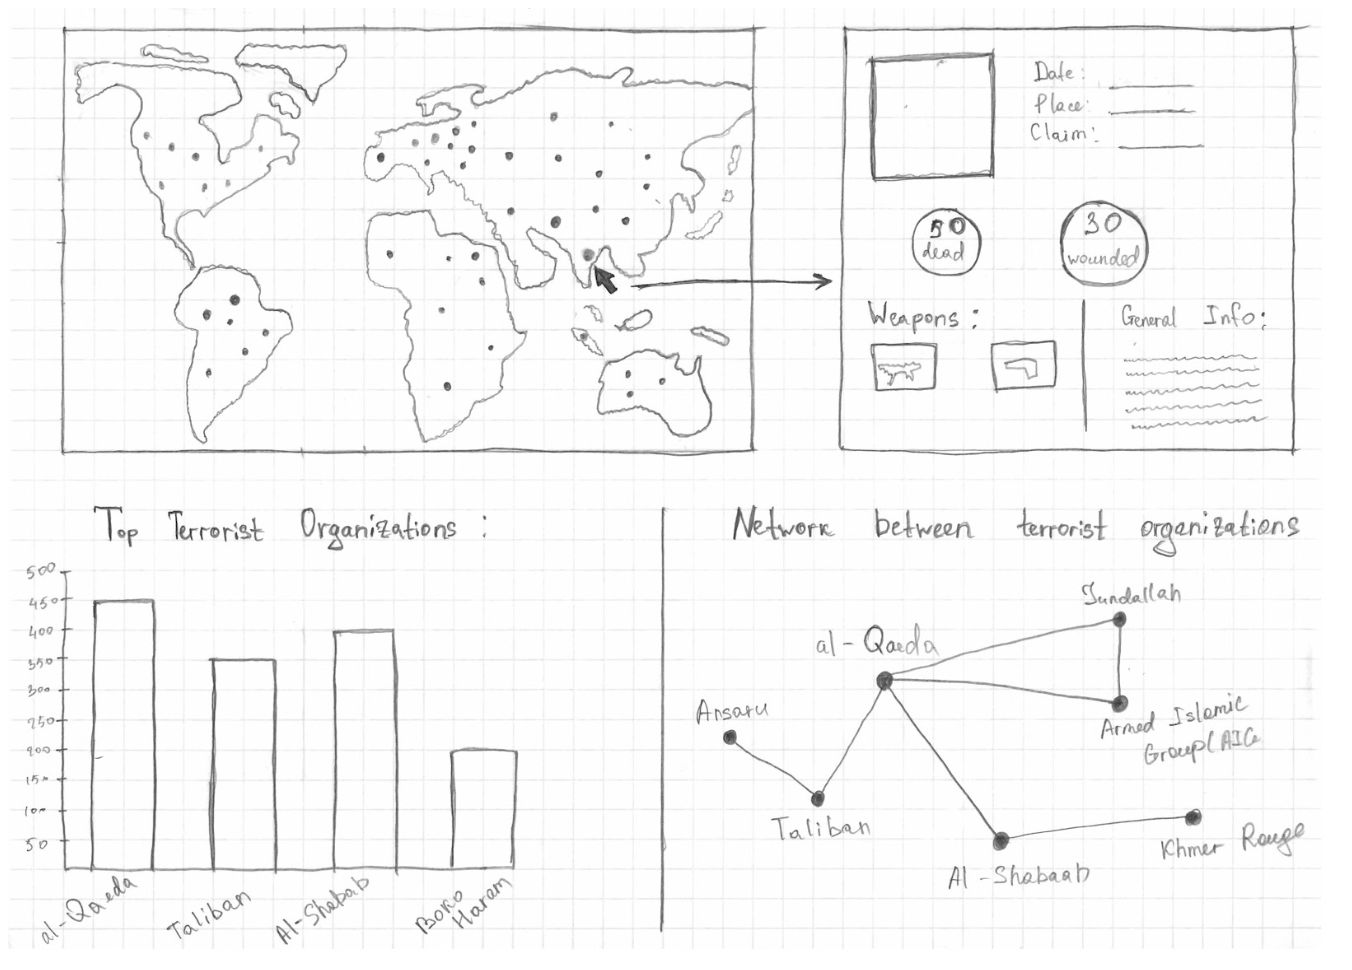 Date:
Place:
Claim:
50
dead
30
wounded
Weapons:
General Info:
Top Terrorist Organizations:
500
450
400
350
300
250
200
150
100
50
al-Qaeda
Taliban
Al-Shabab
Boko
Haram
Network between terrorist organizations
Jundallah
al-Qaeda
Ansaru
Armed Islamic
Group(AIG
Taliban
Khmer Rouge
Al-Shabaab